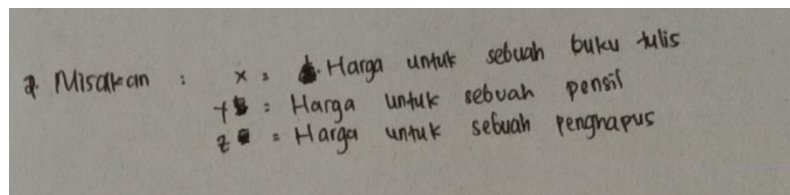 2. Misalkan : x = Harga untuk sebuah buku tulis
y = Harga untuk sebuah pensil
z = Harga untuk sebuah penghapus